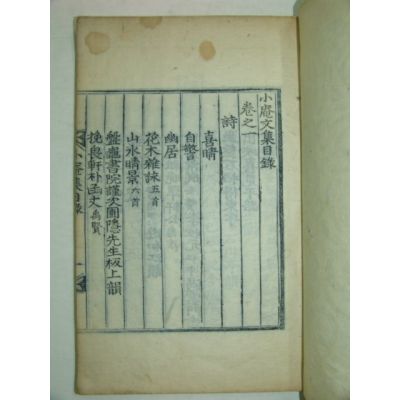 小庵文集目錄
卷之一
詩
喜晴
自警
幽居
花木雜詠 五首
山水晴景 六首
盤龜書院謹次圃隱先生板上韻
挽畏軒朴函丈 禹賢
小庵集目錄